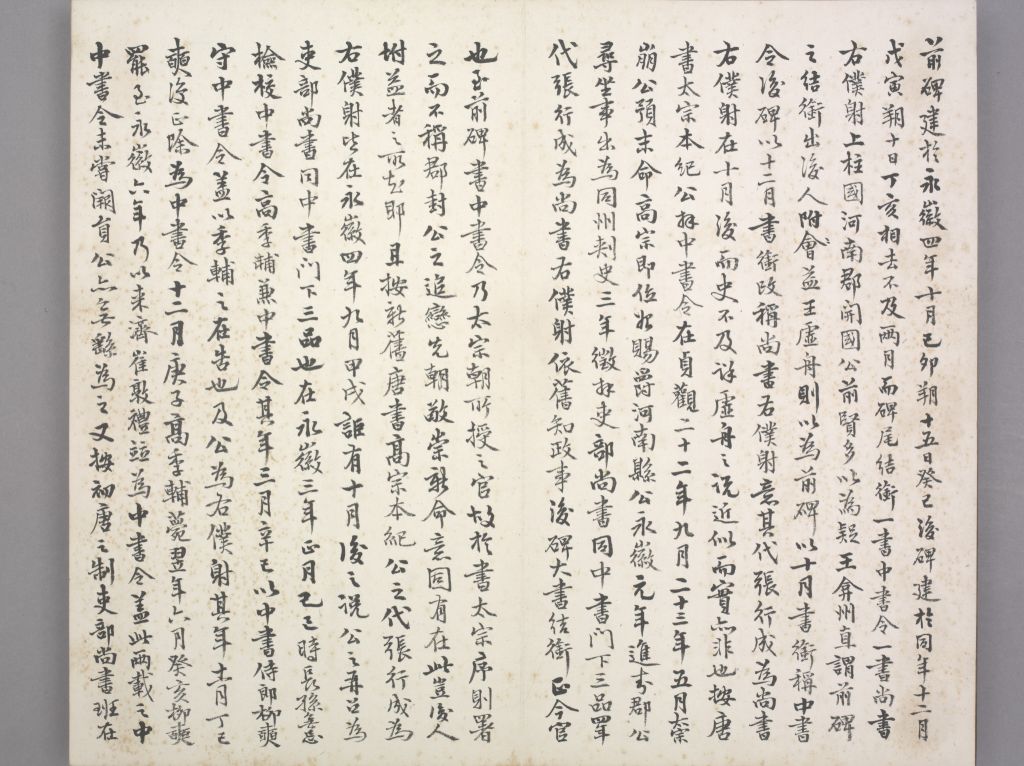 前碑建於永徽四年十月己卯朔十五日癸巳後碑建於同年十二月
戊寅朔十日丁亥相去不及兩月而碑尾結銜一書中書令一書尚書
右僕射上柱國河南郡開國公前賢多以為疑王弇州直謂前碑
之結銜出後人附會益王虛舟則以為前碑以十月書銜稱中書
令後碑以十二月書銜改稱尚書右僕射意其代張行成為尚書
右僕射在十月後而史不及詳虛舟之說近似而實亦非也按唐
書太宗本紀公拜中書令在貞觀二十二年九月二十三年五月太宗
崩公預末命高宗即位始賜爵河南縣公永徽元年進封郡公
尋坐事出為同州刺史三年徵拜吏部尚書同中書門下三品四年
代張行成為尚書右僕射依舊知政事後碑大書結銜正今官
也至前碑書中書令乃太宗朝所授之官故於書太宗序則署
之而不稱郡封公之追戀先朝敬崇新命意固有在此豈後人
坿益者之所知耶且按新舊唐書高宗本紀公之代張行成為
右僕射皆在永徽四年九月甲戌詎有十月後之說公之再召為
吏部尚書同中書門下三品也在永徽三年正月己巳時長孫無忌
檢校中書令高季輔兼中書令其年三月辛巳以中書侍郎柳奭
守中書令蓋以季輔之在告也及公為右僕射其年十一月丁巳
奭後正除為中書令十二月庚子高季輔薨翌年六月癸亥柳奭
罷至永徽六年乃以來濟崔敦禮竝為中書令蓋此兩載之中
中書令未嘗闕員公亦無繇為之又按初唐之制吏部尚書班在